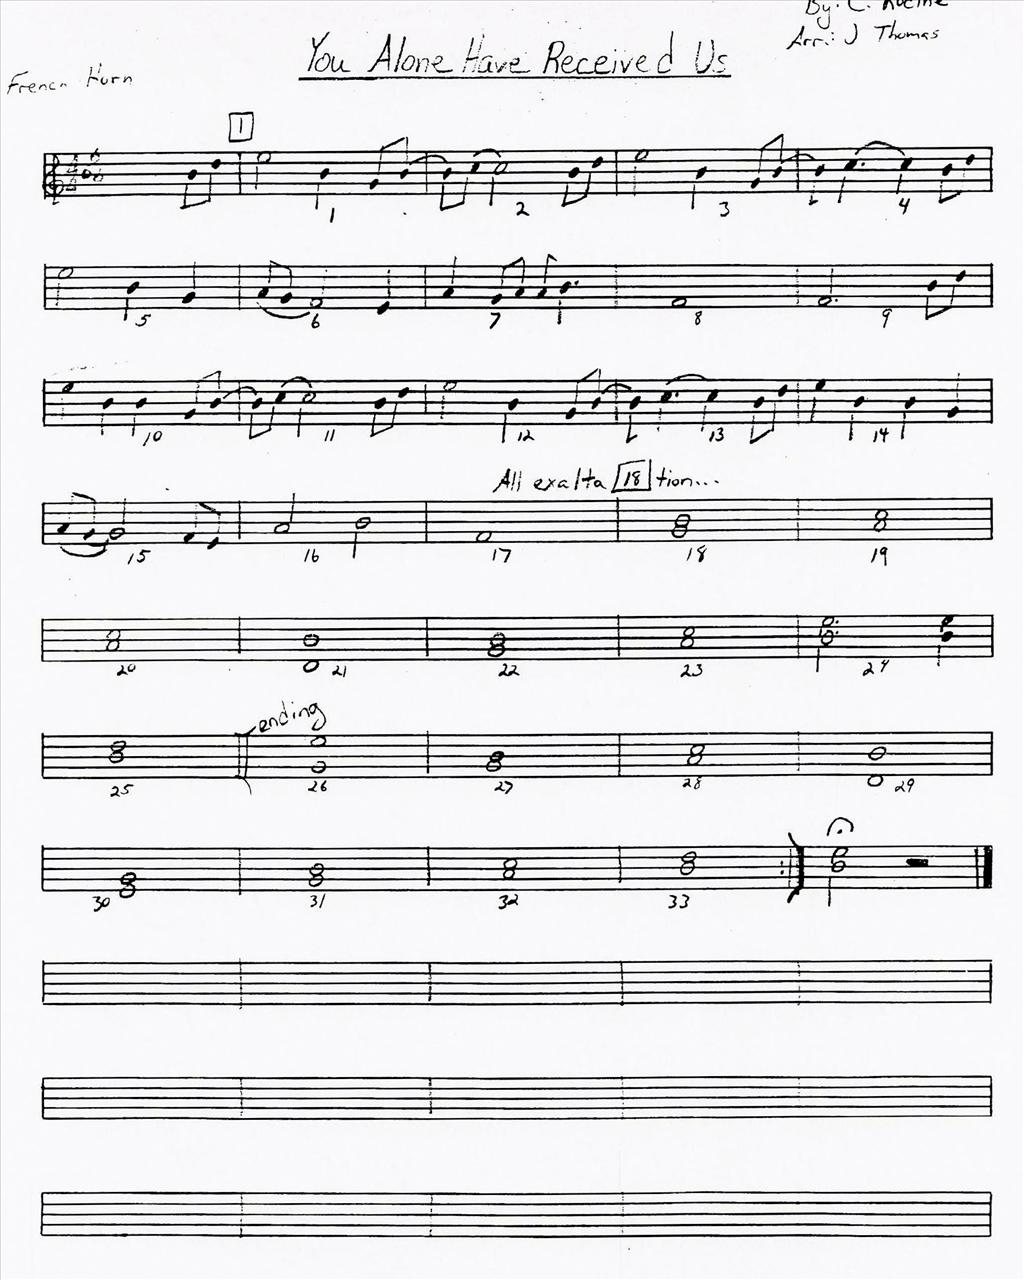 By: C.
Arr: J Thomas
You Alone Have Received Us
French Horn
1
1 2 3 4
5 6 7 8 9
10 11 12 13 14
All exalta 18 tion...
15 16 17 18 19
20 21 22 23 24
ending
25 26 27 28 29
30 31 32 33